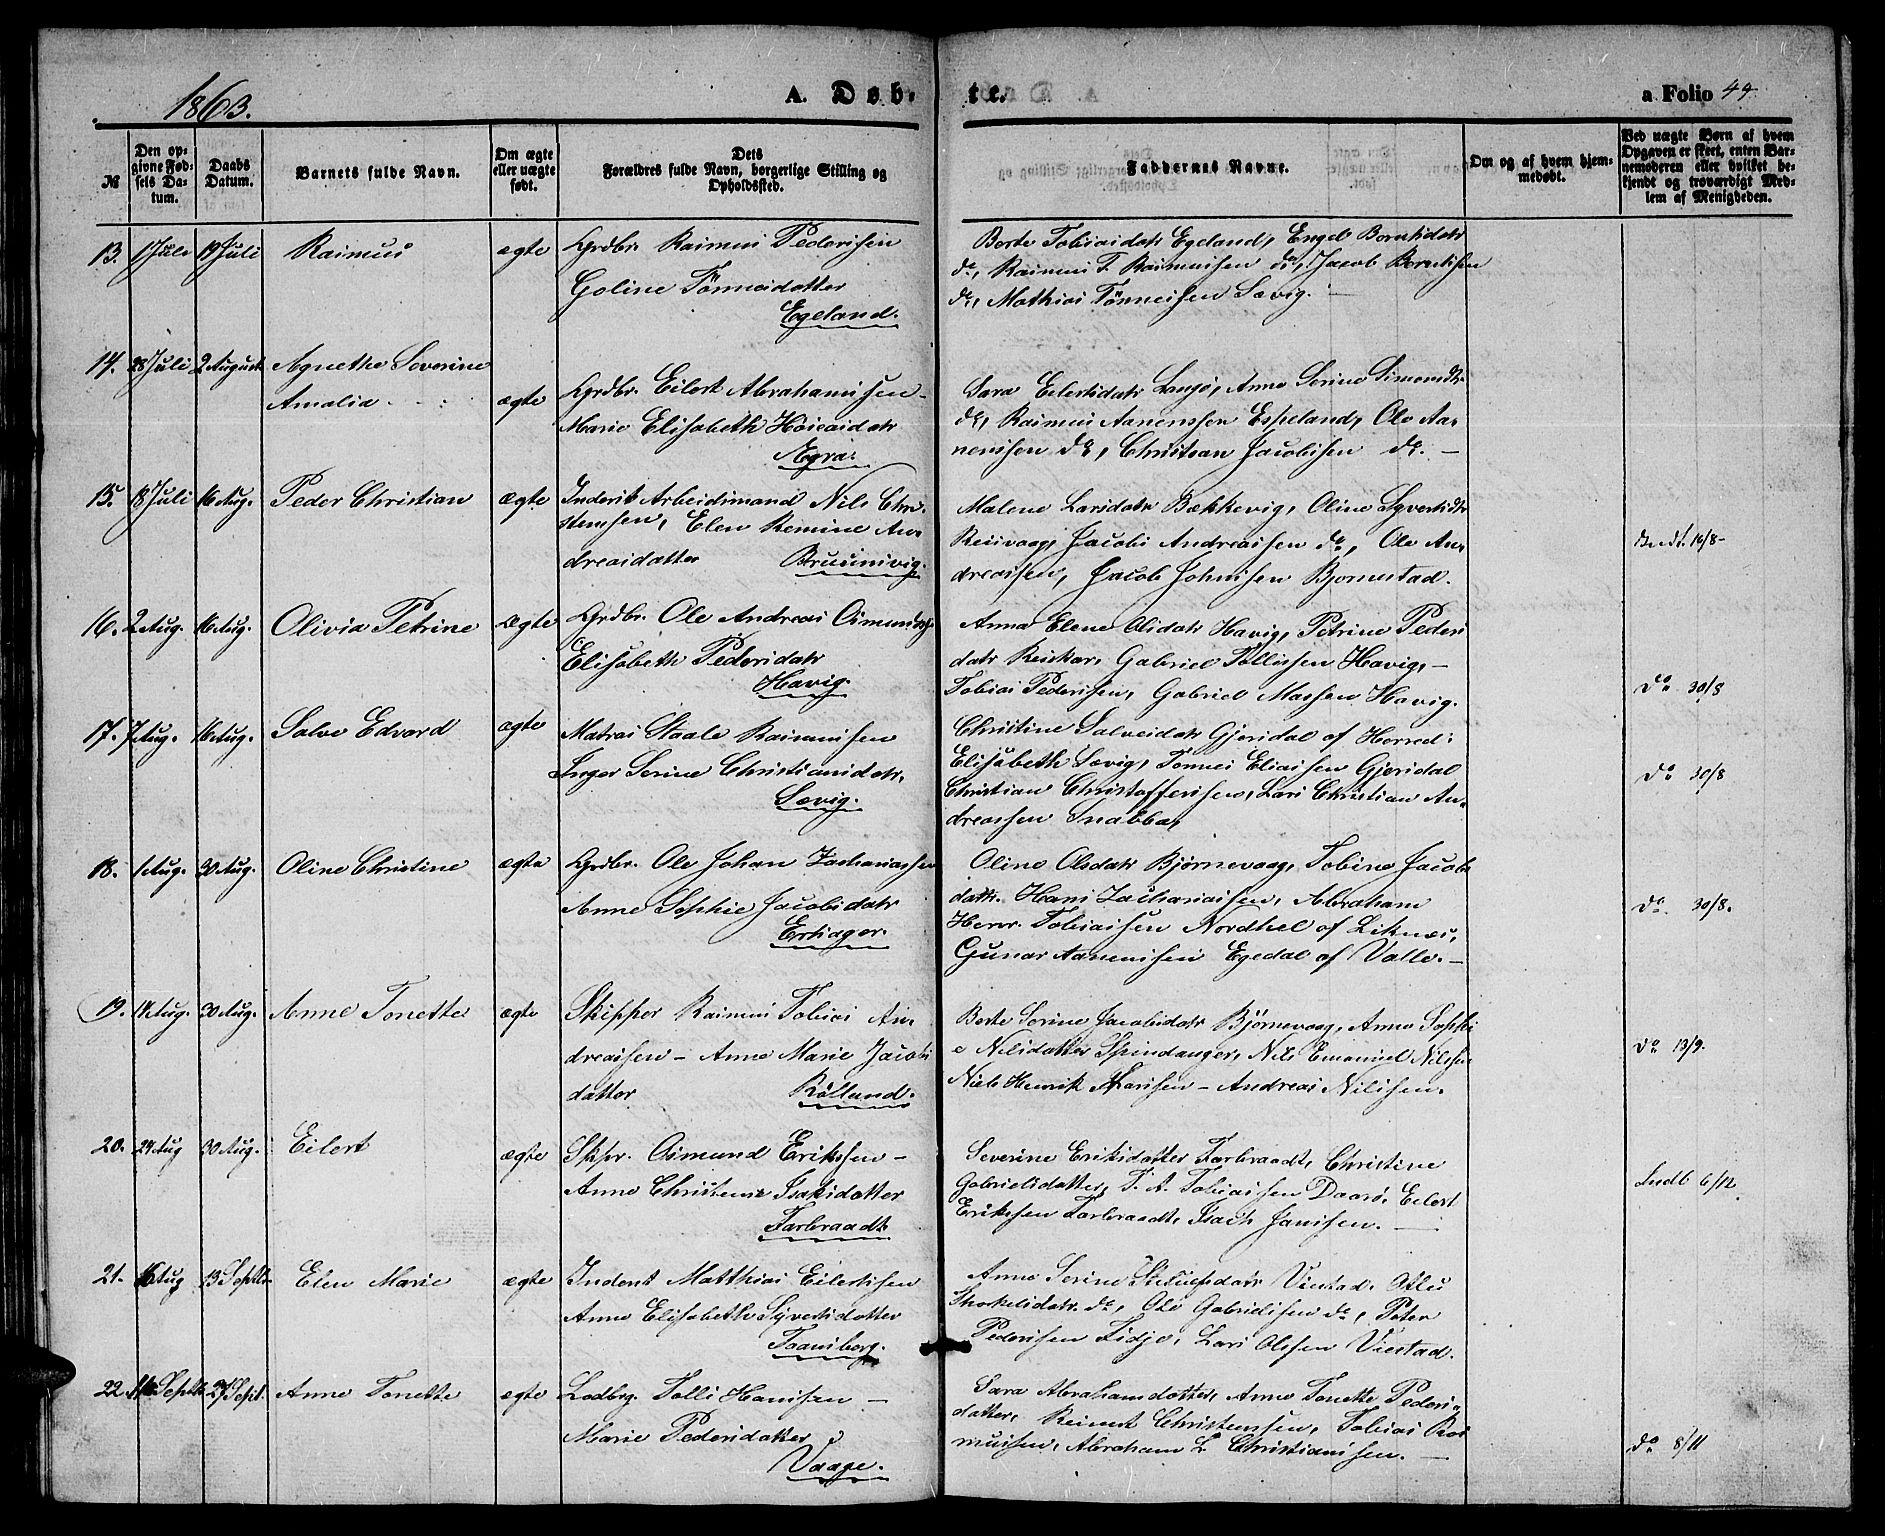 1863.
A. Døb-
te.
a Folio 49.
№
Den op-
givne Fød-
sels Da-
tum.
Daabs
Datum.
Barnets fulde Navn.
Om ægte
eller uægte
født.
Dets
Forældres fulde Navn, borgerlige Stilling og
Opholdssted.
Faddernes Navne.
Om og af hvem hjem-
medøbt.
Ved uægte Børn af hvem
Opgaven er skeet, enten Bar-
nemoderen eller hvilket be-
kjendt og troværdigt Med-
lem af Menigheden.
13. 1 Juli 19 Juli Rasmus ægte Grdbr. Rasmus Pedersen
Goline Tönnesdatter
Egeland.
Berte Tobiasdatr Egeland, Engel Berentsdatr
do, Rasmus T. Rasmussen do, Jacob Berentsen
do, Mathias Tönnessen Sævig. –
14. 28 Juli 2 August Agnethe Severine
Amalia ægte Grdbr. Eilert Abrahamsen –
Marie Elisabeth Höieasdatr
Agra.
Sara Eilertsdatr Langö, Anne Serine Simonsdtr
do, Rasmus Aanenssen Espeland, Ole Aa-
nenssen do, Christian Jacobsen do. –
15. 18 Juli 16 Aug. Peder Christian ægte Inderst Arbeidsmand Nils Chri-
stensen, Elen Remine An-
dreasdatter Bruusnivig.
Malene Larsdatr Bækkevig, Oline Syvertsdtr
Reisvaag, Jacobs Andreassen do, Ole An-
dreassen, Jacob Johnsen Bjornestad.
Indt. 16/8 –
16. 2 Aug. 16 Aug. Olivia Petrine Ægte Grdbr. Ole Andreas Osmundss.
Elisabeth Pedersdatr
Havig.
Anna Elene Olsdatr Havig, Petrine Peders
datr Reiskar, Gabriel Tollissen Havig, –
Tobias Pedersen, Gabriel Massen Havig.
do 30/8
17. 7 Aug. 16 Aug. Salve Edvard ægte Matros Staale Rasmussen
Inger Serine Christiansdatr.
Sævig.
Christine Salvesdatr Gjersdal af Herred:
Elisabeth Sævig, Tönnes Eliassen Gjersdal
Christian Christoffersen, Lars Christian An-
dreassen Snabba,
do 30/8
18. 1 Aug. 30 Aug. Oline Christine ægte Grdbr. Ole Johan Zachariassen
Anne Sophie Jacobsdatr
Ertzager.
Oline Olsdatr Bjørnevaag, Tobine Jacobs
datr. Hans Zachariassen, Abraham
Herv. Tobiassen Nordhel af Liknæs,
Gunar Aanensen Egedal af Valle. –
do 30/8.
19. 14 Aug. 30 Aug. Anne Tonette ægte Skipper Rasmus Tobias An-
dreassen – Anne Marie Jacobs
datter Rölland.
Berte Serine Jacobsdatr Bjørnevaag, Anne Sophi
e Nilsdatter Spindanger, Nils Emanuel Nilssen
Niels Henrik Hansen – Andreas Nilssen.
do 13/9.
20. 24 Aug 30 Aug. Eilert ægte Skpr. Osmund Erikssen –
Anne Christense Isaksdatter
Farbraadt
Severine Eriksdatter Farbraadt, Christine
Gabrielsdatter, T. A. Tobiassen Daarö, Eilert
Erikssen Farbraadt, Isach Jansen. –
Indb 6/12.
21. 16 Aug 13 Septb. Elen Marie ægte Inderst Matthias Eilertsen
Anne Elisabeth Syvertsdatter
Taansberg.
Anne Serine datr Viestad. Otlu
Thorkelsdatr. do, Ole Gabrielsen do, Peter
Pedersen Fidje, Lars Olssen Viestad.
22. 11 Septb 27 Sept. Anne Tonette ægte Lodbrg. Tolli Hanssen –
Marie Pedersdatter
Vaage.
Sara Abrahamsdatter, Anne Tonette Peders-
datter, Reinert Christenssen, Tobias Ras
mussen, Abraham L Christiansen. –
do 8/11